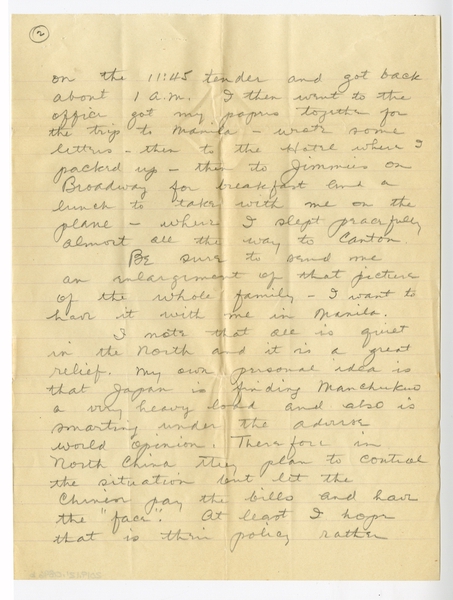 2
on the 11:45 tender and got back
about 1 A.M. I then went to the
office got my papers together for
the trip to Manila - wrote some
letters - then to the Hotel where I
packed up - then to Jimmies on
Broadway for breakfast and a
lunch to take with me on the
plane - where I slept peacefully
almost all the way to Canton
Be sure to send me
an enlargement of that picture
of the whole family - I want to
have it with me in Manila.
I note that all is quiet
in the North and it is a great
relief. My own personal idea is
that Japan is finding Manchukuo
a very heavy load and also is
smarting under the adverse
world opinion. Therefore in
North China they plan to control
the situation but let the
Chinese pay the bills and have
the "face". At least I hope
that is their policy rather